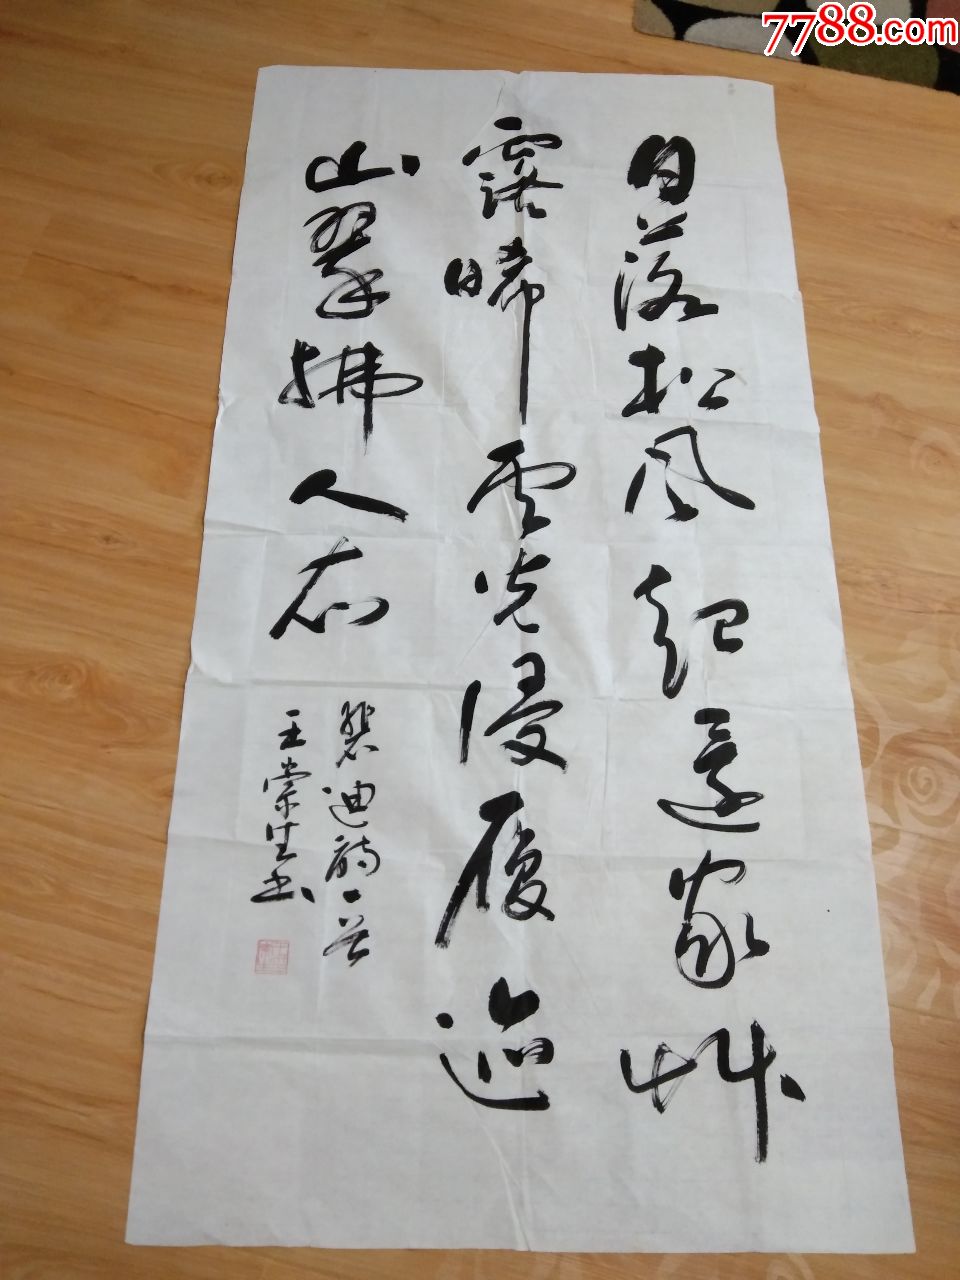 日落松风起還家艸
露晞雲光侵履迹
山翠拂人衣
裴迪詩一首
王崇生书
7788.com